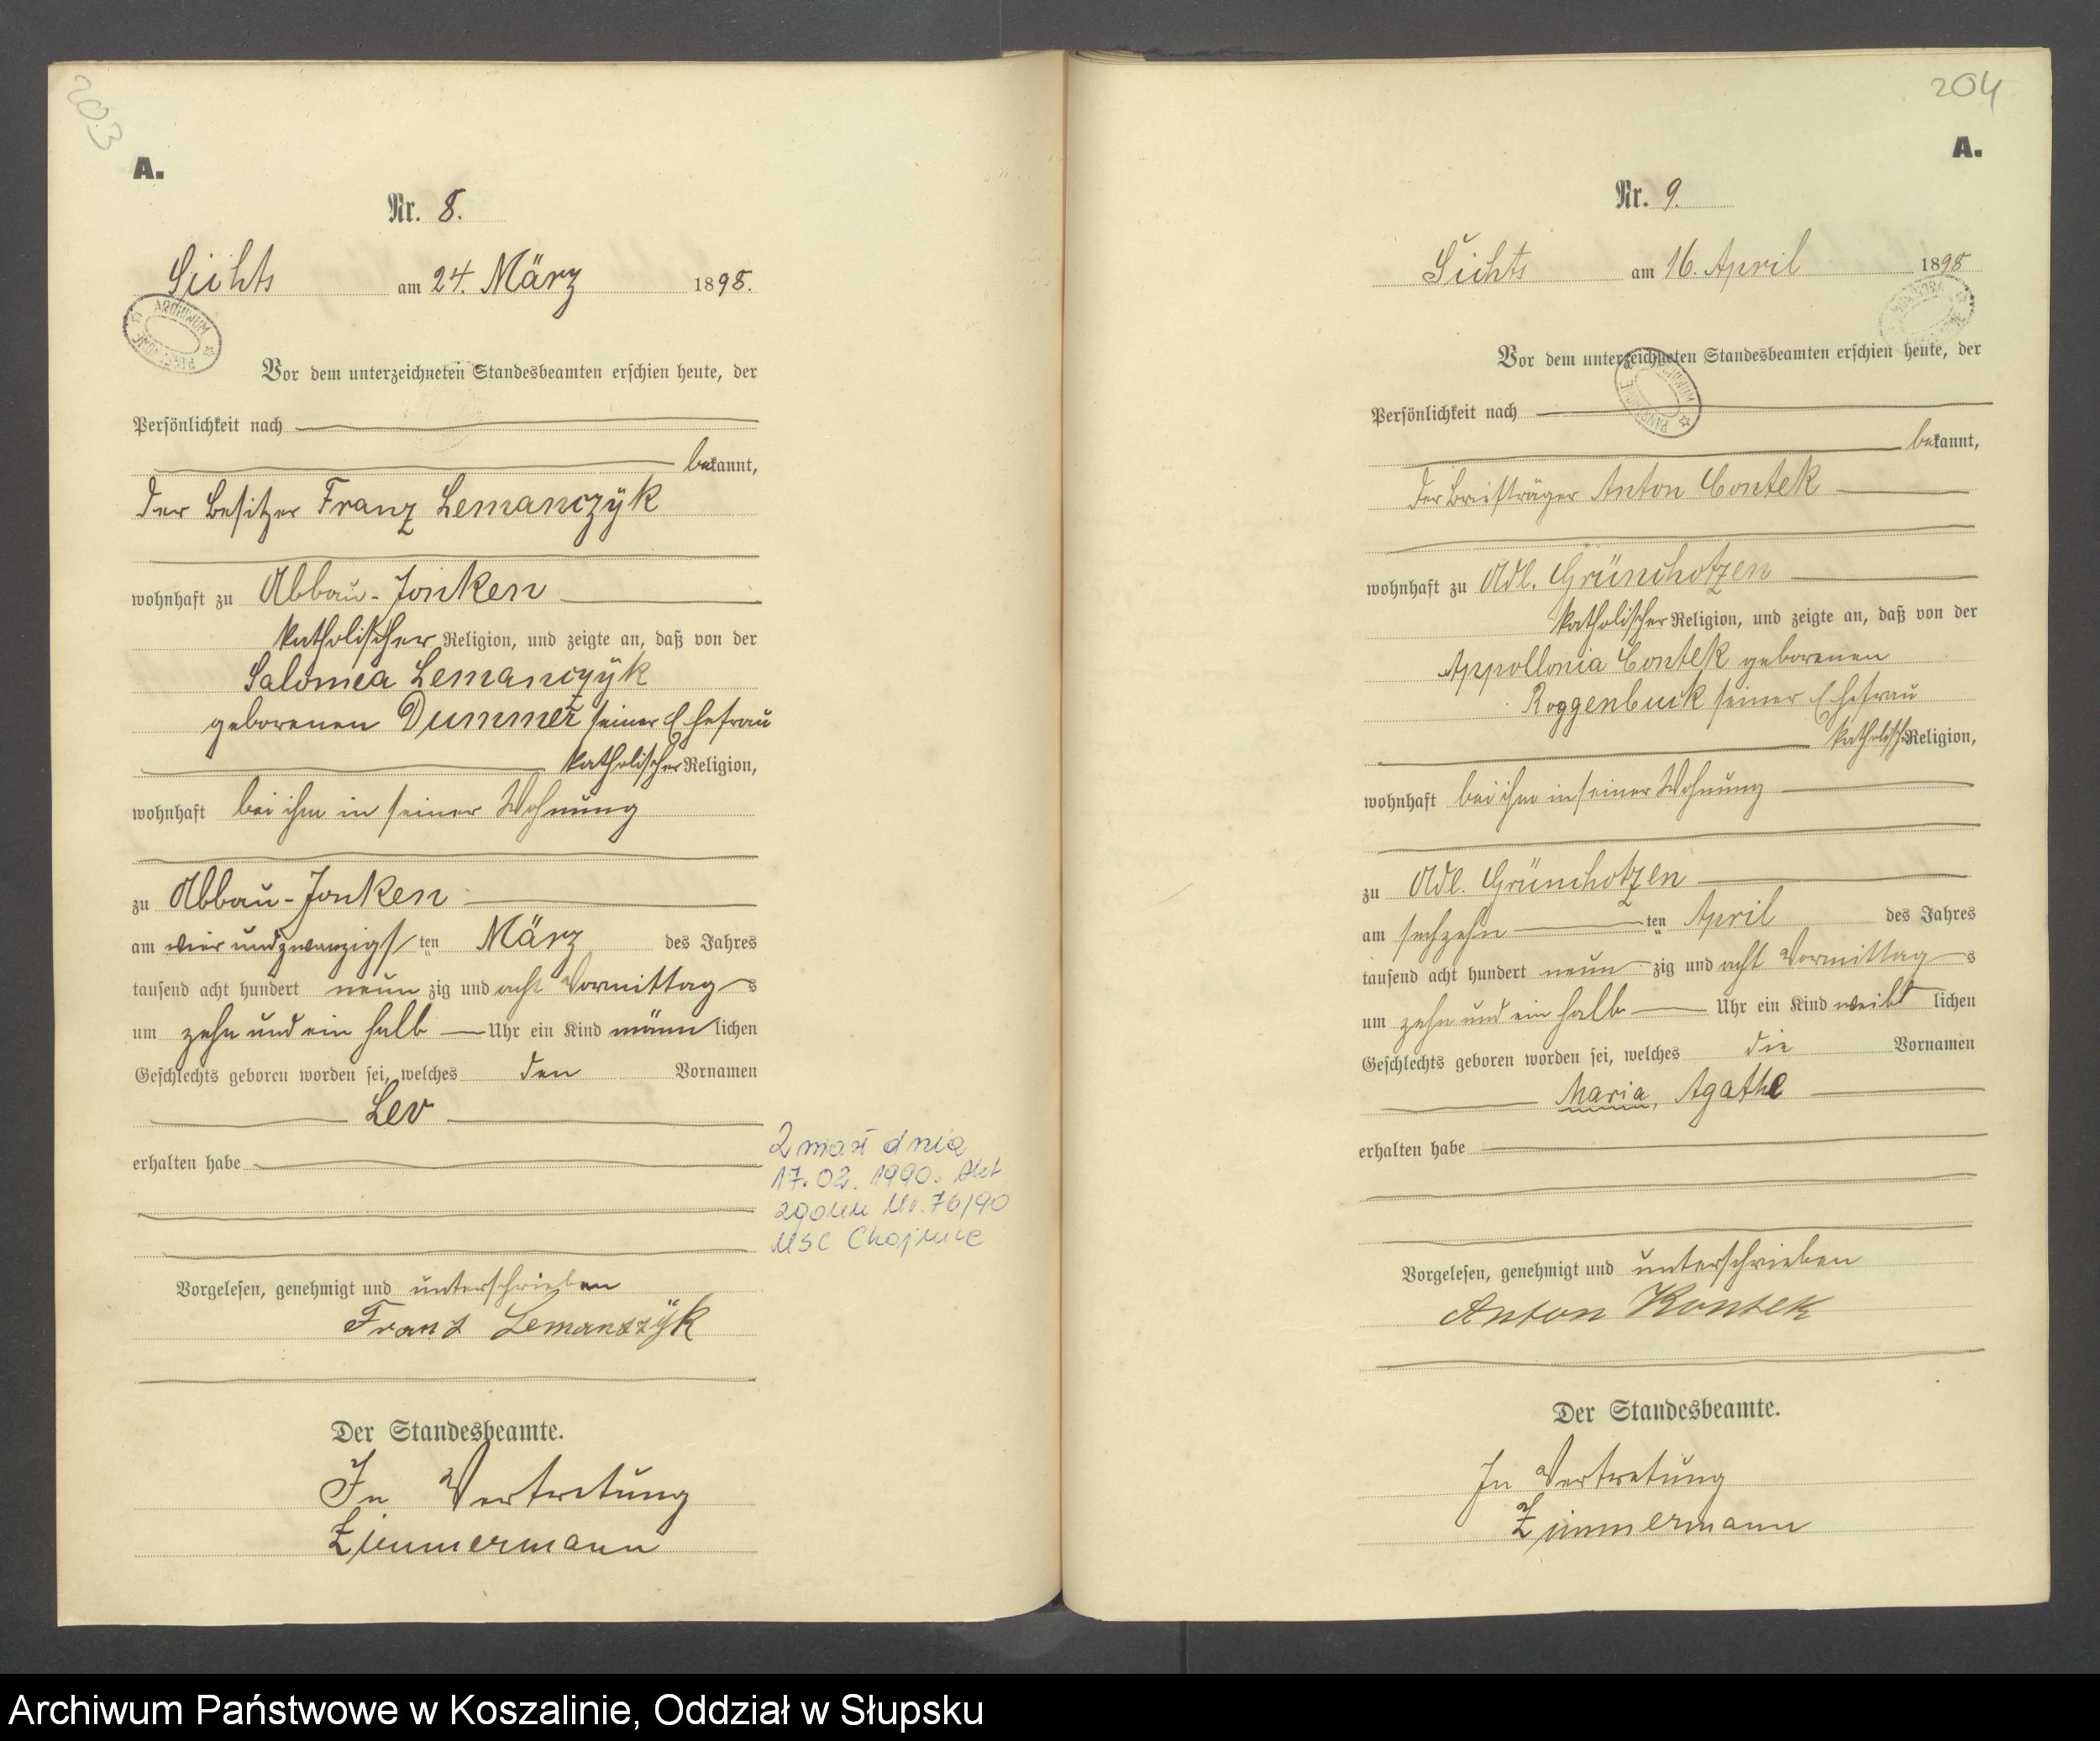 203
A.
Nr. 8.
Sichts am 24. März 1898.
ARCHIWUM PAŃSTWOWE
Vor dem unterzeichneten Standesbeamten erschien heute, der
Persönlichkeit nach
bekannt,
der Besitzer Franz Lemanczÿk
wohnhaft zu Abbau-Jonken
katholischer Religion, und zeigte an, daß von der
Salomea Lemanczÿk
geborenen Dummer seiner Ehefrau
katholischer Religion,
wohnhaft bei ihm in seiner Wohnung
zu Abbau-Jonken
am vier und zwanzigsten März des Jahres
tausend acht hundert neunzig und acht Vormittags
um zehn und ein halb Uhr ein Kind männlichen
Geschlechts geboren worden sei, welches den Vornamen
Leo
erhalten habe
Zmarł dnia
17.02.1990. Akt
zgonu Nr. 76/90
USC Chojnice
Vorgelesen, genehmigt und unterschrieben
Franz Lemanszÿk
Der Standesbeamte.
In Vertretung
Zimmermann
204
A.
Nr. 9.
Sichts am 16. April 1898
Vor dem unterzeichneten Standesbeamten erschien heute, der
Persönlichkeit nach
bekannt,
der Briefträger Anton Contek
wohnhaft zu Adl. Grünchotzen
katholischer Religion, und zeigte an, daß von der
Appollonia Contek geborenen
Roggenbuck seiner Ehefrau
katholisch Religion,
wohnhaft bei ihm in seiner Wohnung
zu Adl. Grünchotzen
am sechzehnten April des Jahres
tausend acht hundert neunzig und acht Vormittags
um zehn und ein halb Uhr ein Kind weiblichen
Geschlechts geboren worden sei, welches die Vornamen
Maria, Agathe
erhalten habe
Vorgelesen, genehmigt und unterschrieben
Anton Kontek
Der Standesbeamte.
In Vertretung
Zimmermann
Archiwum Państwowe w Koszalinie, Oddział w Słupsku